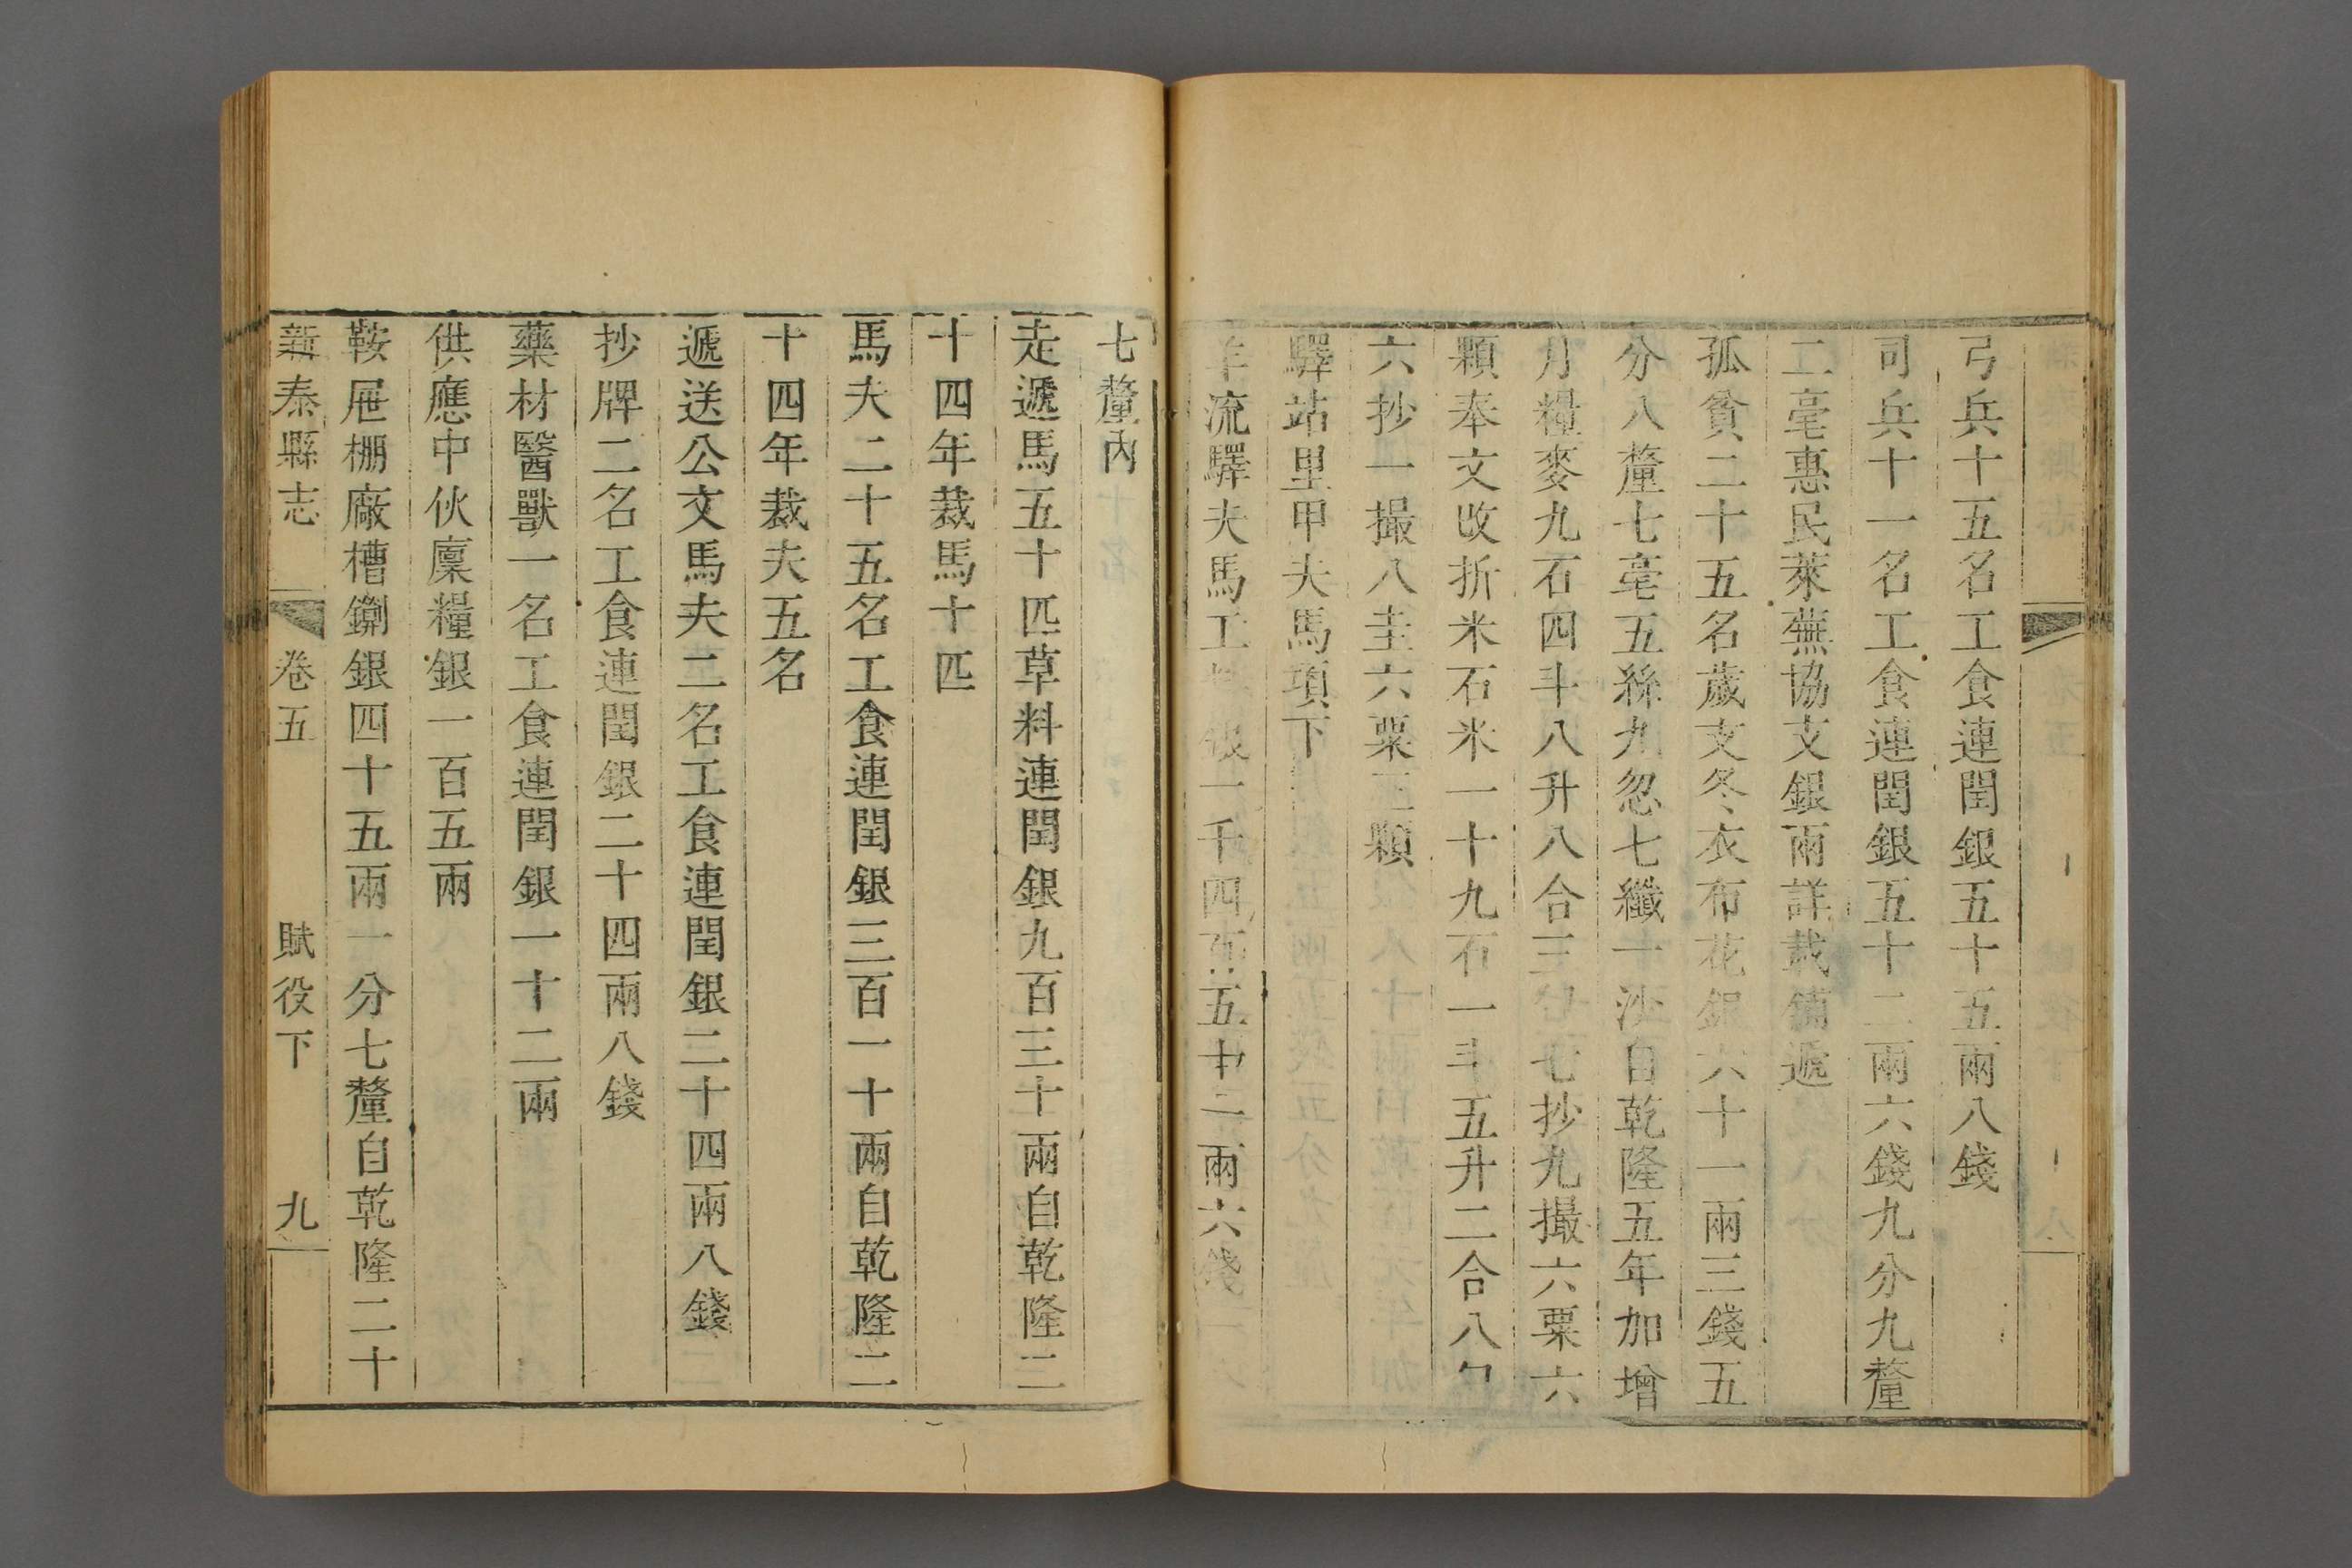 弓兵十五名工食連閏銀五十五兩八錢
司兵十一名工食連閏銀五十二兩六錢九分九釐
二毫惠民萊蕪協支銀兩詳載鋪遞
孤貧二十五名歲支冬衣布花銀六十一兩三錢五
分八釐七毫五絲九忽七纖一沙自乾隆五年加增
月糧麥九石四斗八升八合三勺七抄九撮六粟六
顆奉文改折米石米一十九石一斗五升二合八勺
六抄一撮八圭六粟三顆
驛站里甲夫馬項下
羊流驛夫馬工料銀一千四百五十二兩六錢
七釐內
走遞馬五十匹草料連閏銀九百三十兩自乾隆二
十四年裁馬十匹
馬夫二十五名工食連閏銀三百一十兩自乾隆二
十四年裁夫五名
遞送公文馬夫二名工食連閏銀二十四兩八錢
抄牌二名工食連閏銀二十四兩八錢
藥材醫獸一名工食連閏銀一十二兩
供應中伙廩糧銀一百五兩
鞍屜棚廠槽鍘銀四十五兩一分七釐自乾隆二十
新泰縣志 卷五 賦役下 九